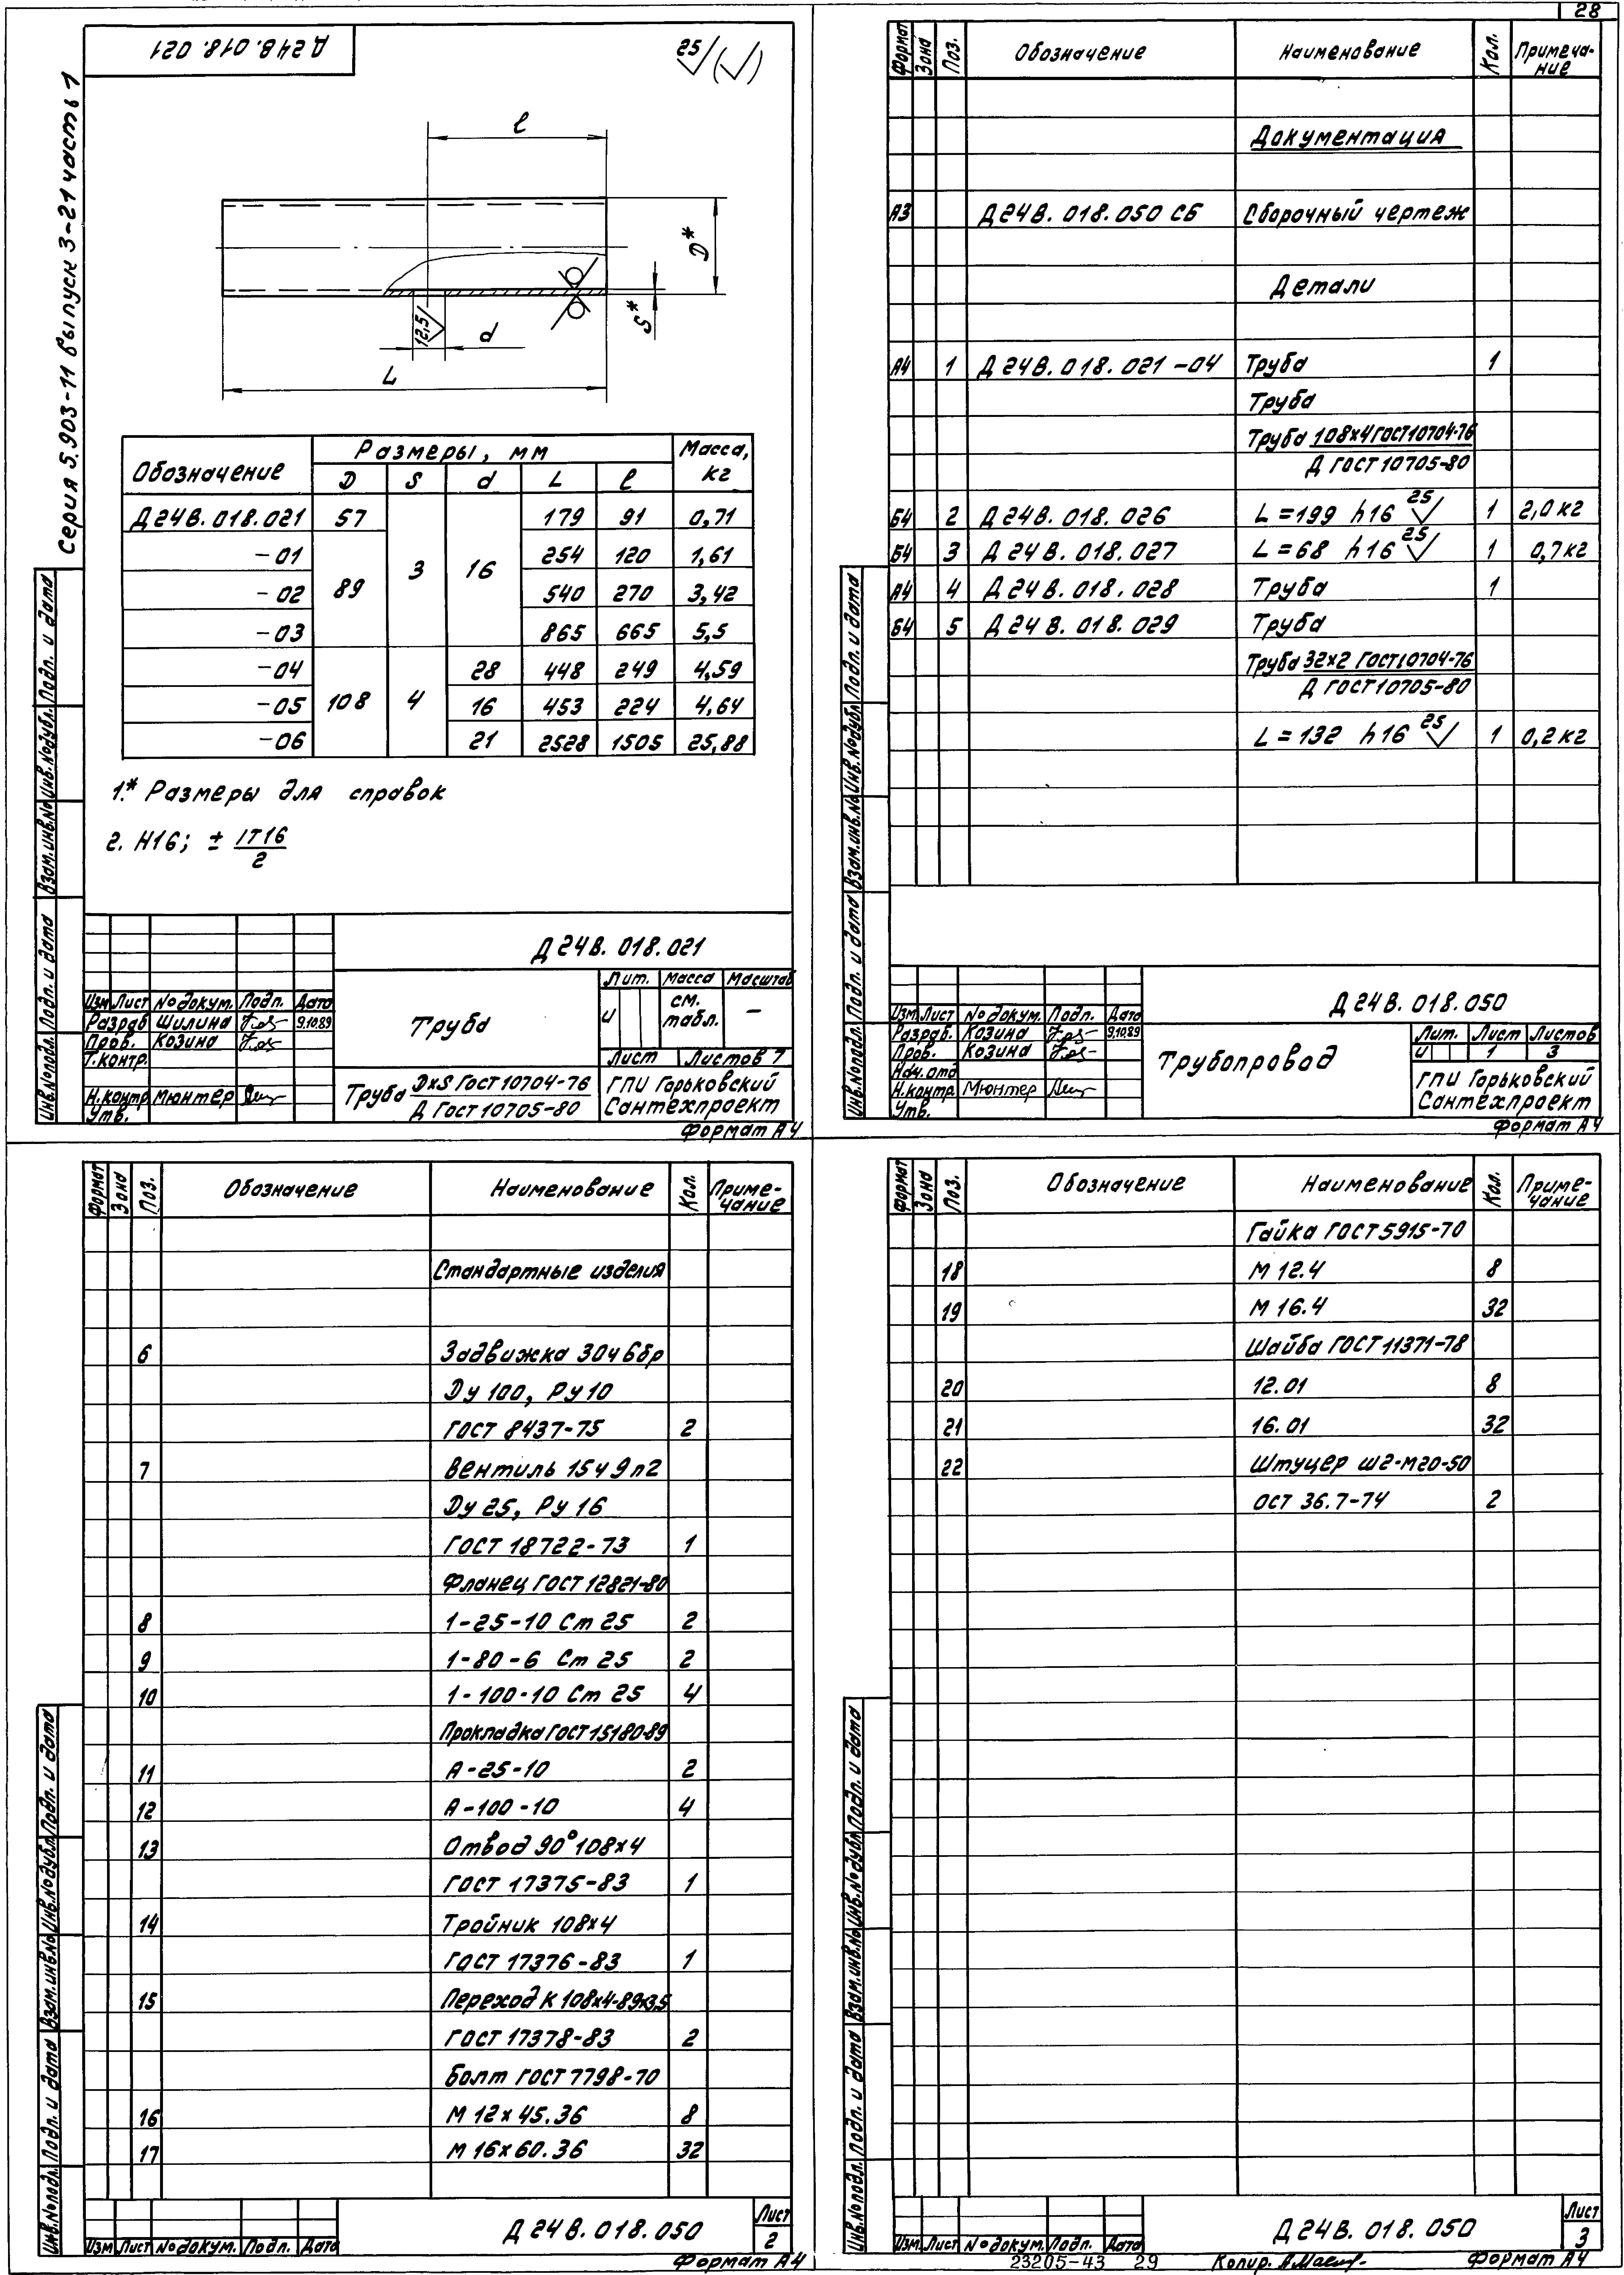 28
Д24В.018.021
25
Серия 5.903-11 выпуск 3-21 часть 1
ℓ
D*
S*
12,5
d
L
Обозначение
Размеры, мм
Масса, кг
D S d L ℓ
Д24В.018.021 57 3 16 179 91 0,71
-01 89 254 120 1,61
-02 540 270 3,42
-03 865 665 5,5
-04 108 4 28 448 249 4,59
-05 16 453 224 4,64
-06 21 2528 1505 25,88
1.* Размеры для справок
2. H16; ± IT16/2
Инв.№подл. Подп. и дата Взам.инв.№ Инв.№дубл. Подп. и дата
Д24В.018.021
Изм Лист №докум. Подп. Дата
Разраб Шилина 9.10.89
Пров. Козина
Т.контр.
Н.контр Мюнтер
Утв.
Труба
Лит. Масса Масштаб
и см. табл. –
Лист Листов 7
Труба DхS ГОСТ 10704-76
Д ГОСТ 10705-80
ГПИ Горьковский
Сантехпроект
Формат А4
Формат Зона Поз. Обозначение Наименование Кол. Примеча-
ние
Документация
А3 Д24В.018.050 СБ Сборочный чертеж
Детали
А4 1 Д24В.018.021-04 Труба 1
Труба
Труба 108х4 ГОСТ 10704-76
Д ГОСТ 10705-80
Б4 2 Д24В.018.026 L=199 h16 25 1 2,0кг
Б4 3 Д24В.018.027 L=68 h16 25 1 0,7кг
А4 4 Д24В.018.028 Труба 1
Б4 5 Д24В.018.029 Труба
Труба 32х2 ГОСТ 10704-76
Д ГОСТ 10705-80
L=132 h16 25 1 0,2кг
Инв.№подл. Подп. и дата Взам.инв.№ Инв.№дубл. Подп. и дата
Д24В.018.050
Изм Лист №докум. Подп. Дата
Разраб. Козина 9.10.89
Пров. Козина
Нач.отд
Н.контр. Мюнтер
Утв.
Трубопровод
Лит. Лист Листов
и 1 3
ГПИ Горьковский
Сантехпроект
Формат А4
Формат Зона Поз. Обозначение Наименование Кол. Приме-
чание
Стандартные изделия
6 Задвижка 30ч6бр
Ду 100, Ру 10
ГОСТ 8437-75 2
7 Вентиль 15ч9п2
Ду 25, Ру 16
ГОСТ 18722-73 1
Фланец ГОСТ 12821-80
8 1-25-10 Ст 25 2
9 1-80-6 Ст 25 2
10 1-100-10 Ст 25 4
Прокладка ГОСТ 15180-89
11 А-25-10 2
12 А-100-10 4
13 Отвод 90° 108х4
ГОСТ 17375-83 1
14 Тройник 108х4
ГОСТ 17376-83 1
15 Переход К 108х4-89х3,5
ГОСТ 17378-83 2
Болт ГОСТ 7798-70
16 М 12х45.36 8
17 М 16х60.36 32
Инв.№подл. Подп. и дата Взам.инв.№ Инв.№дубл. Подп. и дата
Изм Лист №докум. Подп. Дата
Д24В.018.050
Лист
2
Формат А4
Формат Зона Поз. Обозначение Наименование Кол. Приме-
чание
Гайка ГОСТ 5915-70
18 М 12.4 8
19 М 16.4 32
Шайба ГОСТ 11371-78
20 12.01 8
21 16.01 32
22 Штуцер Ш2-М20-50
ОСТ 36.7-74 2
Инв.№подл. Подп. и дата Взам.инв.№ Инв.№дубл. Подп. и дата
Изм. Лист №докум. Подп. Дата
Д24В.018.050
Лист
3
23205-43 29 Копир. Формат А4